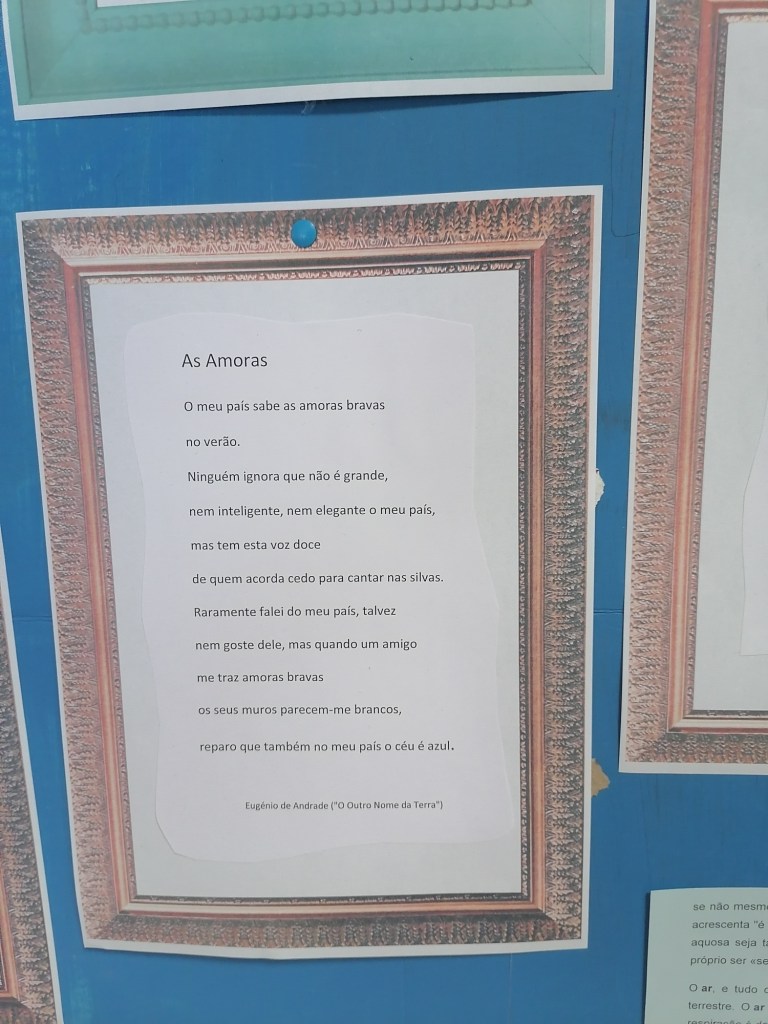 As Amoras
O meu país sabe as amoras bravas
no verão.
Ninguém ignora que não é grande,
nem inteligente, nem elegante o meu país,
mas tem esta voz doce
de quem acorda cedo para cantar nas silvas.
Raramente falei do meu país, talvez
nem goste dele, mas quando um amigo
me traz amoras bravas
os seus muros parecem-me brancos,
reparo que também no meu país o céu é azul.
Eugénio de Andrade ("O Outro Nome da Terra")
se não mesm
acrescenta "é
aquosa seja t
próprio ser «se
O ar, e tudo
terrestre. O ar